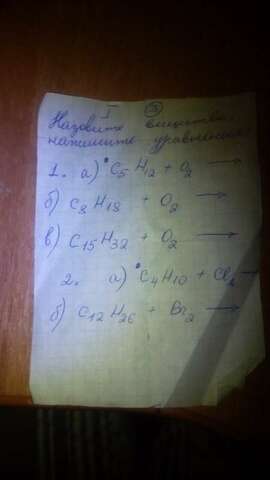 I (5)
Назовите вещества,
напишите уравнения:
1. а) C5 H12 + O2 →
б) C8 H18 + O2 →
в) C15 H32 + O2 →
2. а) C4 H10 + Cl2 →
б) C12 H26 + Br2 →